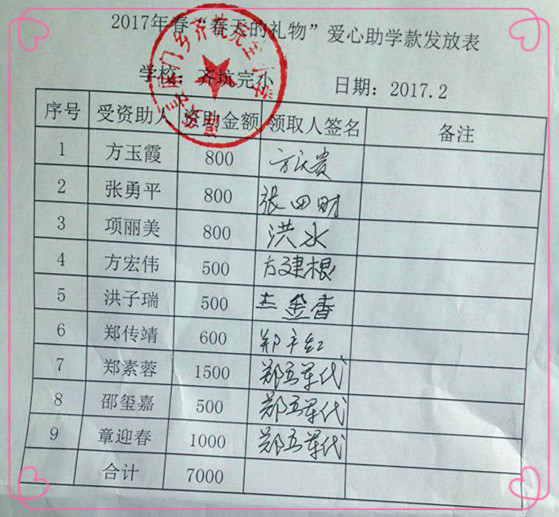 2017年春“春天的礼物”爱心助学款发放表
学校：齐坑完小 日期：2017.2
序号 受资助人 资助金额 领取人签名 备注
1 方玉霞 800
2 张勇平 800 张田财
3 项丽美 800 洪水
4 方宏伟 500 方建根
5 洪子瑞 500 金香
6 郑传靖 600
7 郑素蓉 1500 郑五军代
8 邵玺嘉 500 郑五军代
9 章迎春 1000 郑五军代
合计 7000